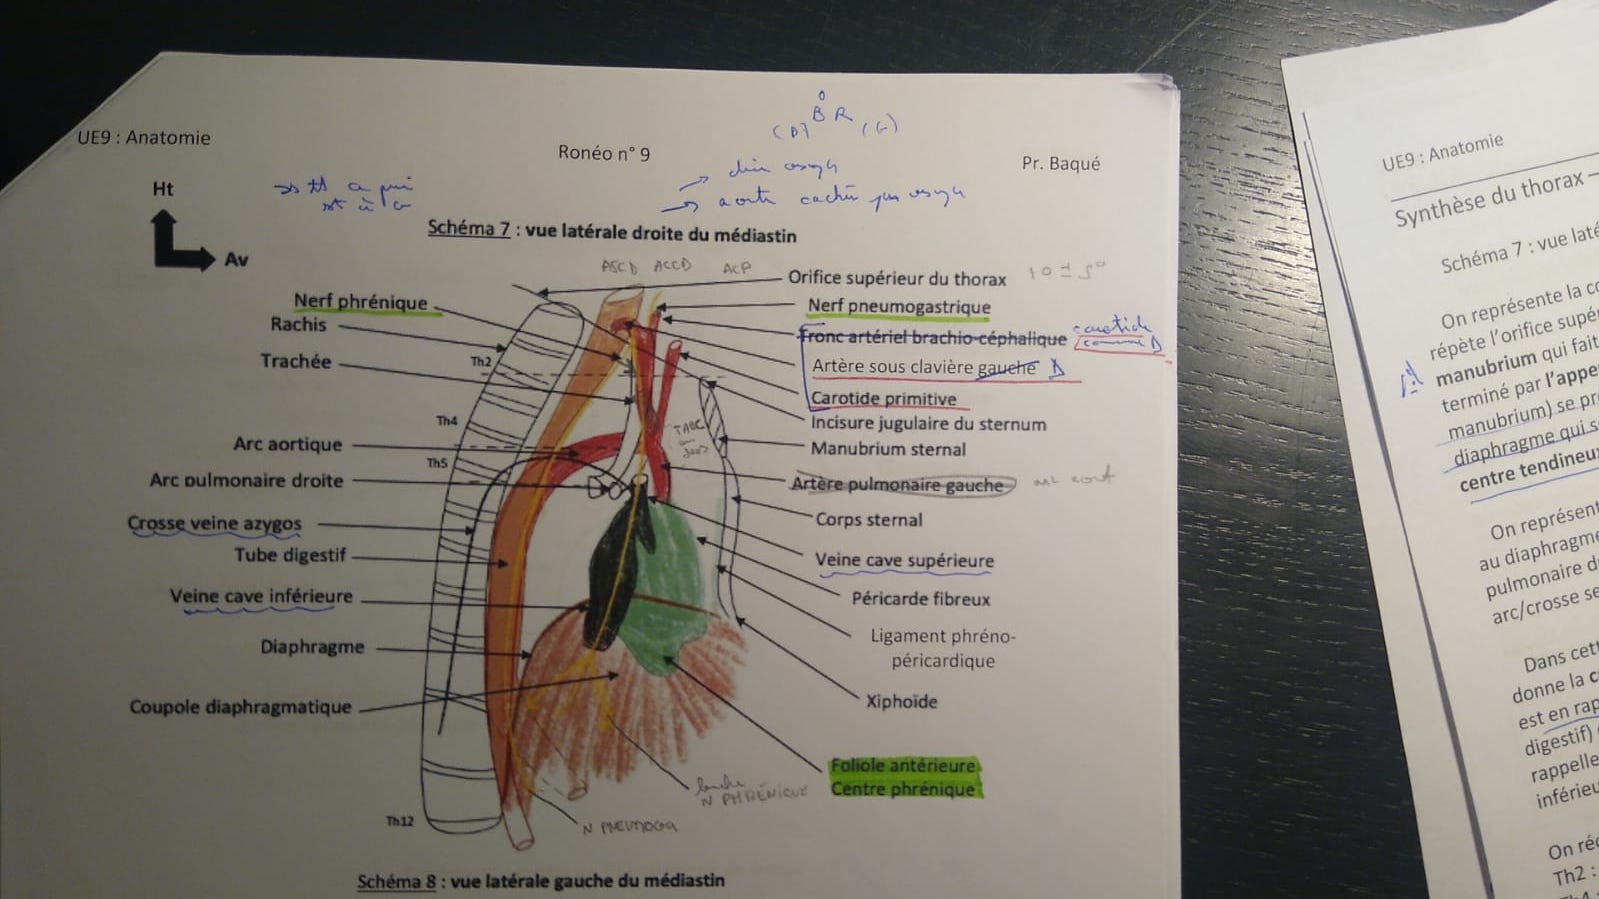 UE9 : Anatomie
Ronéo n° 9
Pr. Baqué
(D) B R (G)
aorte cachée par
Ht
Av
Schéma 7 : vue latérale droite du médiastin
ASCD ACCD ACP
Orifice supérieur du thorax
10 ± 5°
Nerf phrénique
Nerf pneumogastrique
Rachis
Tronc artériel brachio-céphalique
carotide
commune D
Trachée
Th2
Artère sous clavière gauche D
Carotide primitive
Th4
Incisure jugulaire du sternum
TABC
Arc aortique
Manubrium sternal
Th5
Arc pulmonaire droite
Artère pulmonaire gauche
Crosse veine azygos
Corps sternal
Tube digestif
Veine cave supérieure
Veine cave inférieure
Péricarde fibreux
Diaphragme
Ligament phréno-
péricardique
Coupole diaphragmatique
Xiphoïde
Foliole antérieure
Centre phrénique
N PHRÉNIQUE
N PNEUMOGA
Th12
Schéma 8 : vue latérale gauche du médiastin
UE9 : Anatomie
Synthèse du thorax –
Schéma 7 : vue laté
On représente la co
répète l'orifice supé
manubrium qui fait
terminé par l'appe
manubrium) se pr
diaphragme qui s
centre tendineu
On représent
au diaphragme
pulmonaire d
arc/crosse se
Dans cet
donne la c
est en rap
digestif)
rappelle
inférieu
On ré
Th2 :